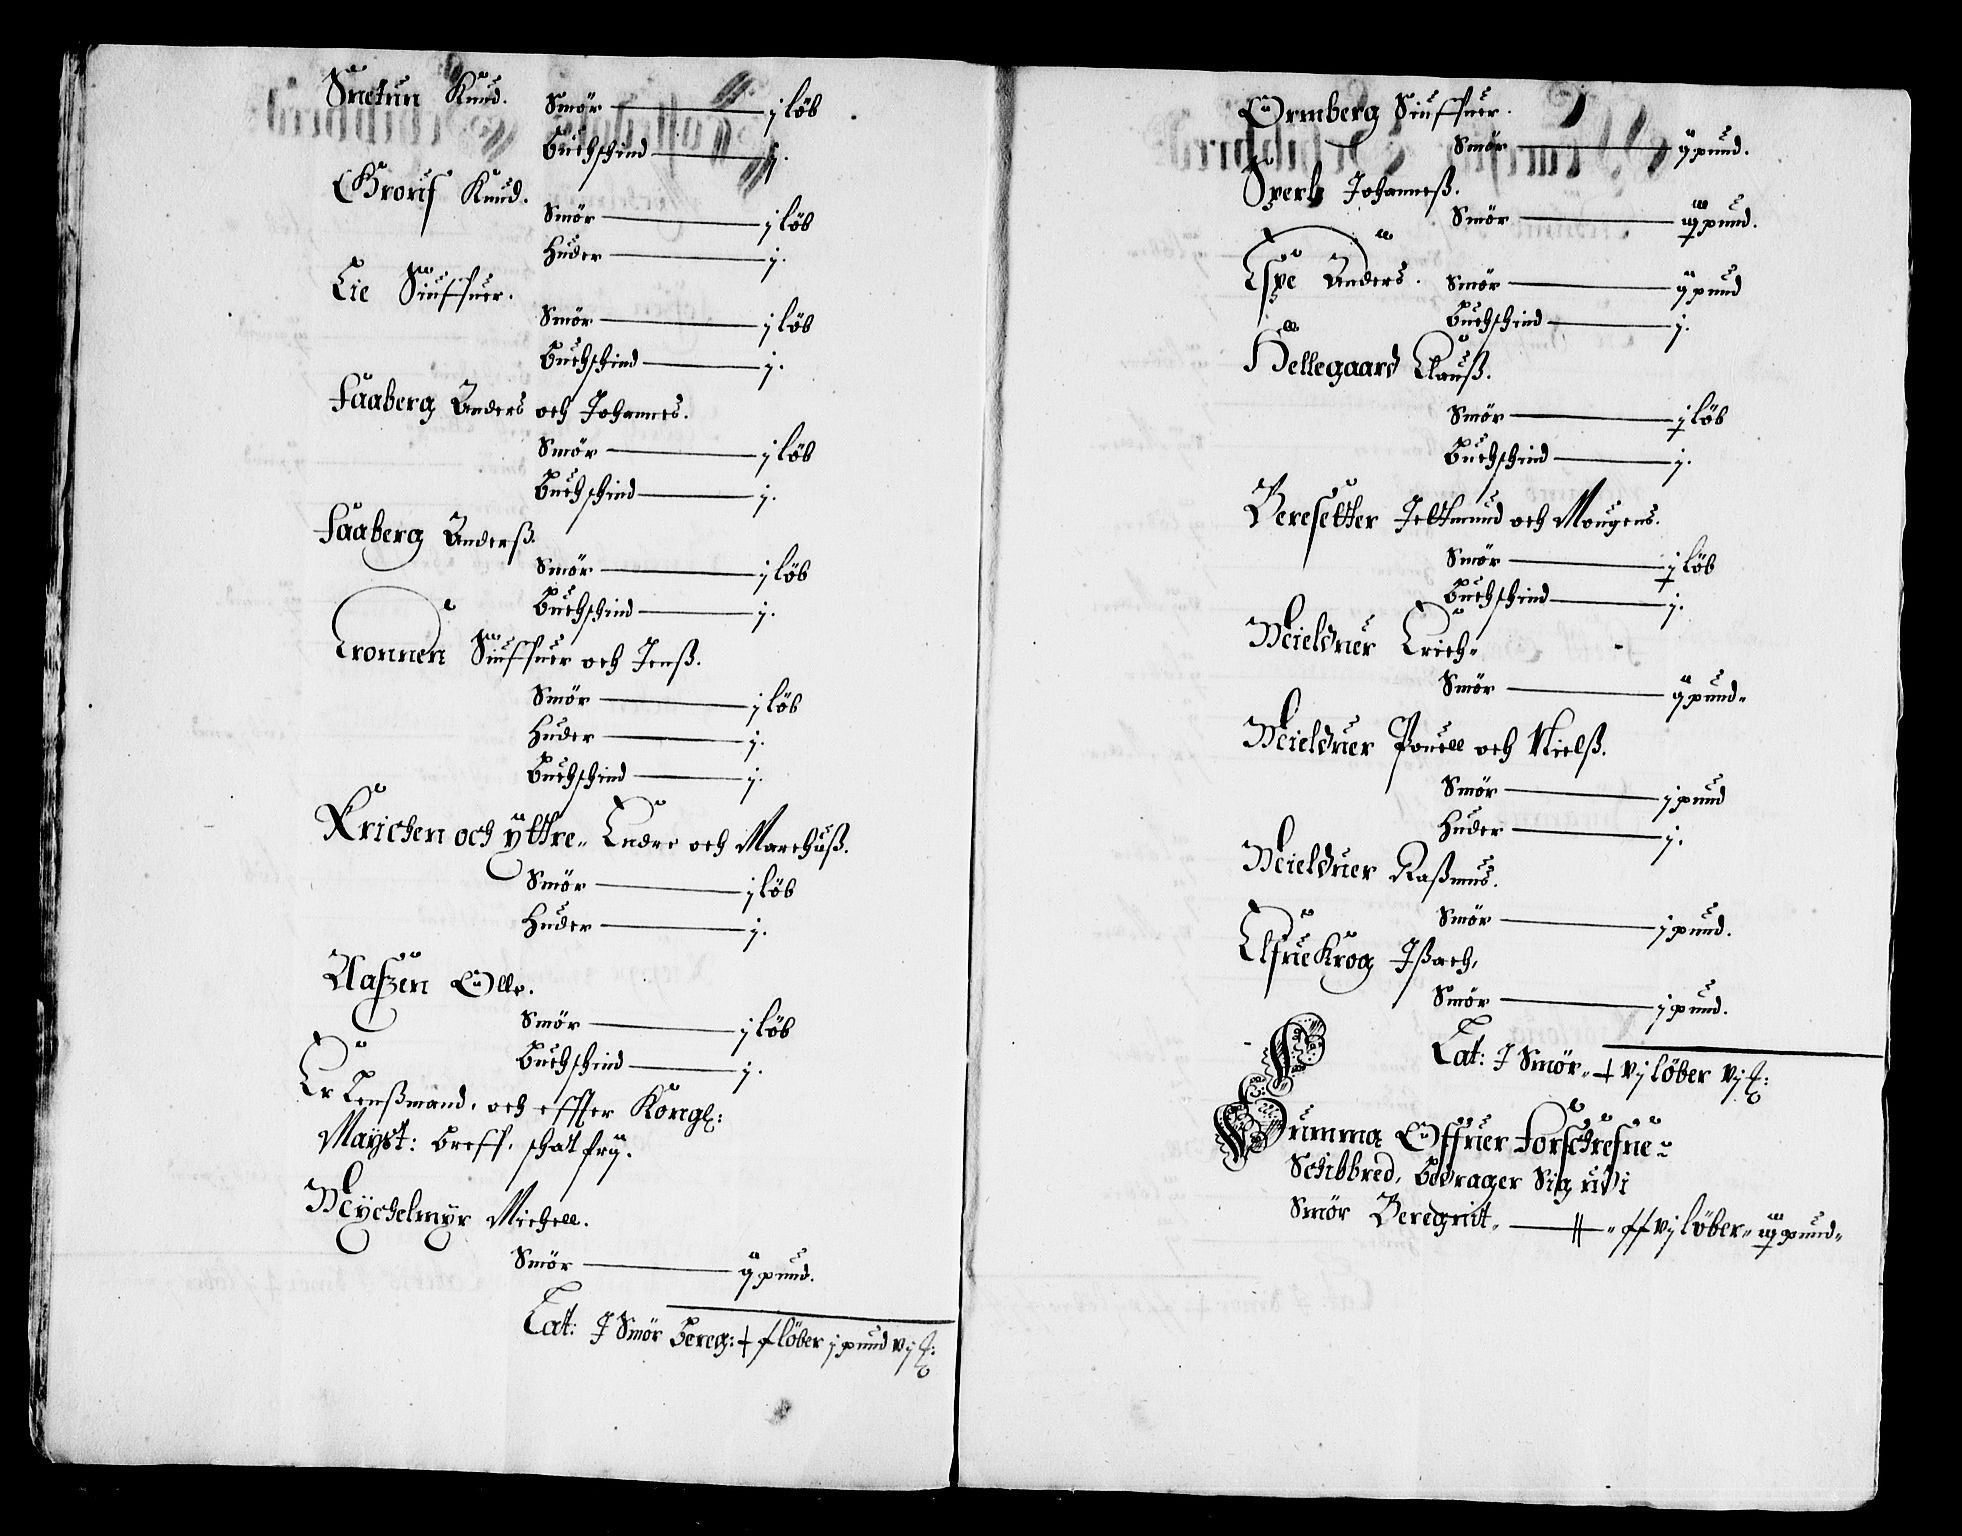 Snetun Knud.
Smör — j löb
Buchschind — j.
Grorif Knud.
Smör — j löb
Huder — j.
Lie Siuffuer.
Smör — j löb
Buchschind — j.
Faaberg Anders och Johannes.
Smör — j löb
Buchschind — j.
Faaberg Anderß.
Smör — j löb
Buchschind — j.
Tronnen Siuffuer och Jenß.
Smör — j löb
Huder — j.
Buchschind — j.
Krichen och ÿttre, Endre och Marchuß.
Smör — j löb
Huder — j.
Nafzen Olle.
Smör — j löb
Buchschind — j.
Er Lenßmand, och effter Kongl:
Mayst: breff, schatfrij.
Myckelmyr Michell.
Smör — ij pund.
Lat: J Smör bereg: j pund
Ormberg Siuffuer.
Smör — ij pund.
Sperle Johanneß.
Smör — pund.
Espe Anders.
Smör — ij pund
Buchschind — j.
Hellegaard Clauß.
Smör — löb
Buchschind — j.
Beresetter Jettmund och Mougens.
Smör — löb
Buchschind — j.
Mielduer Erich
Smör — ij pund
Mielduer Pouell och Nielß.
Smör — j pund
Huder — j.
Mielduer Raßmus.
Smör — j pund.
Elfuekrog Jßach,
Smör — j pund.
Lat: J Smör vj löber
Summa Offuer Forschrefne
Schibbred, Bedrager Sig udi
Smör Beregnit, — vj löber pund